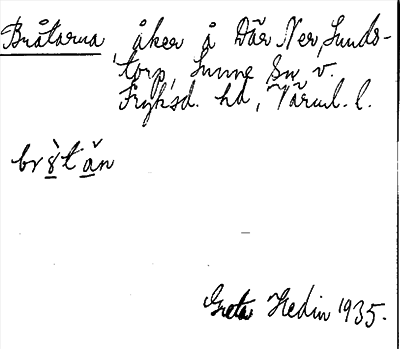 Bråtarna, åker å Där Ner, Sunds-
torp, Sunne Sn v.
Fryksd. hd, Värml. l.
br8̀tǎn
Greta Hedin 1935.